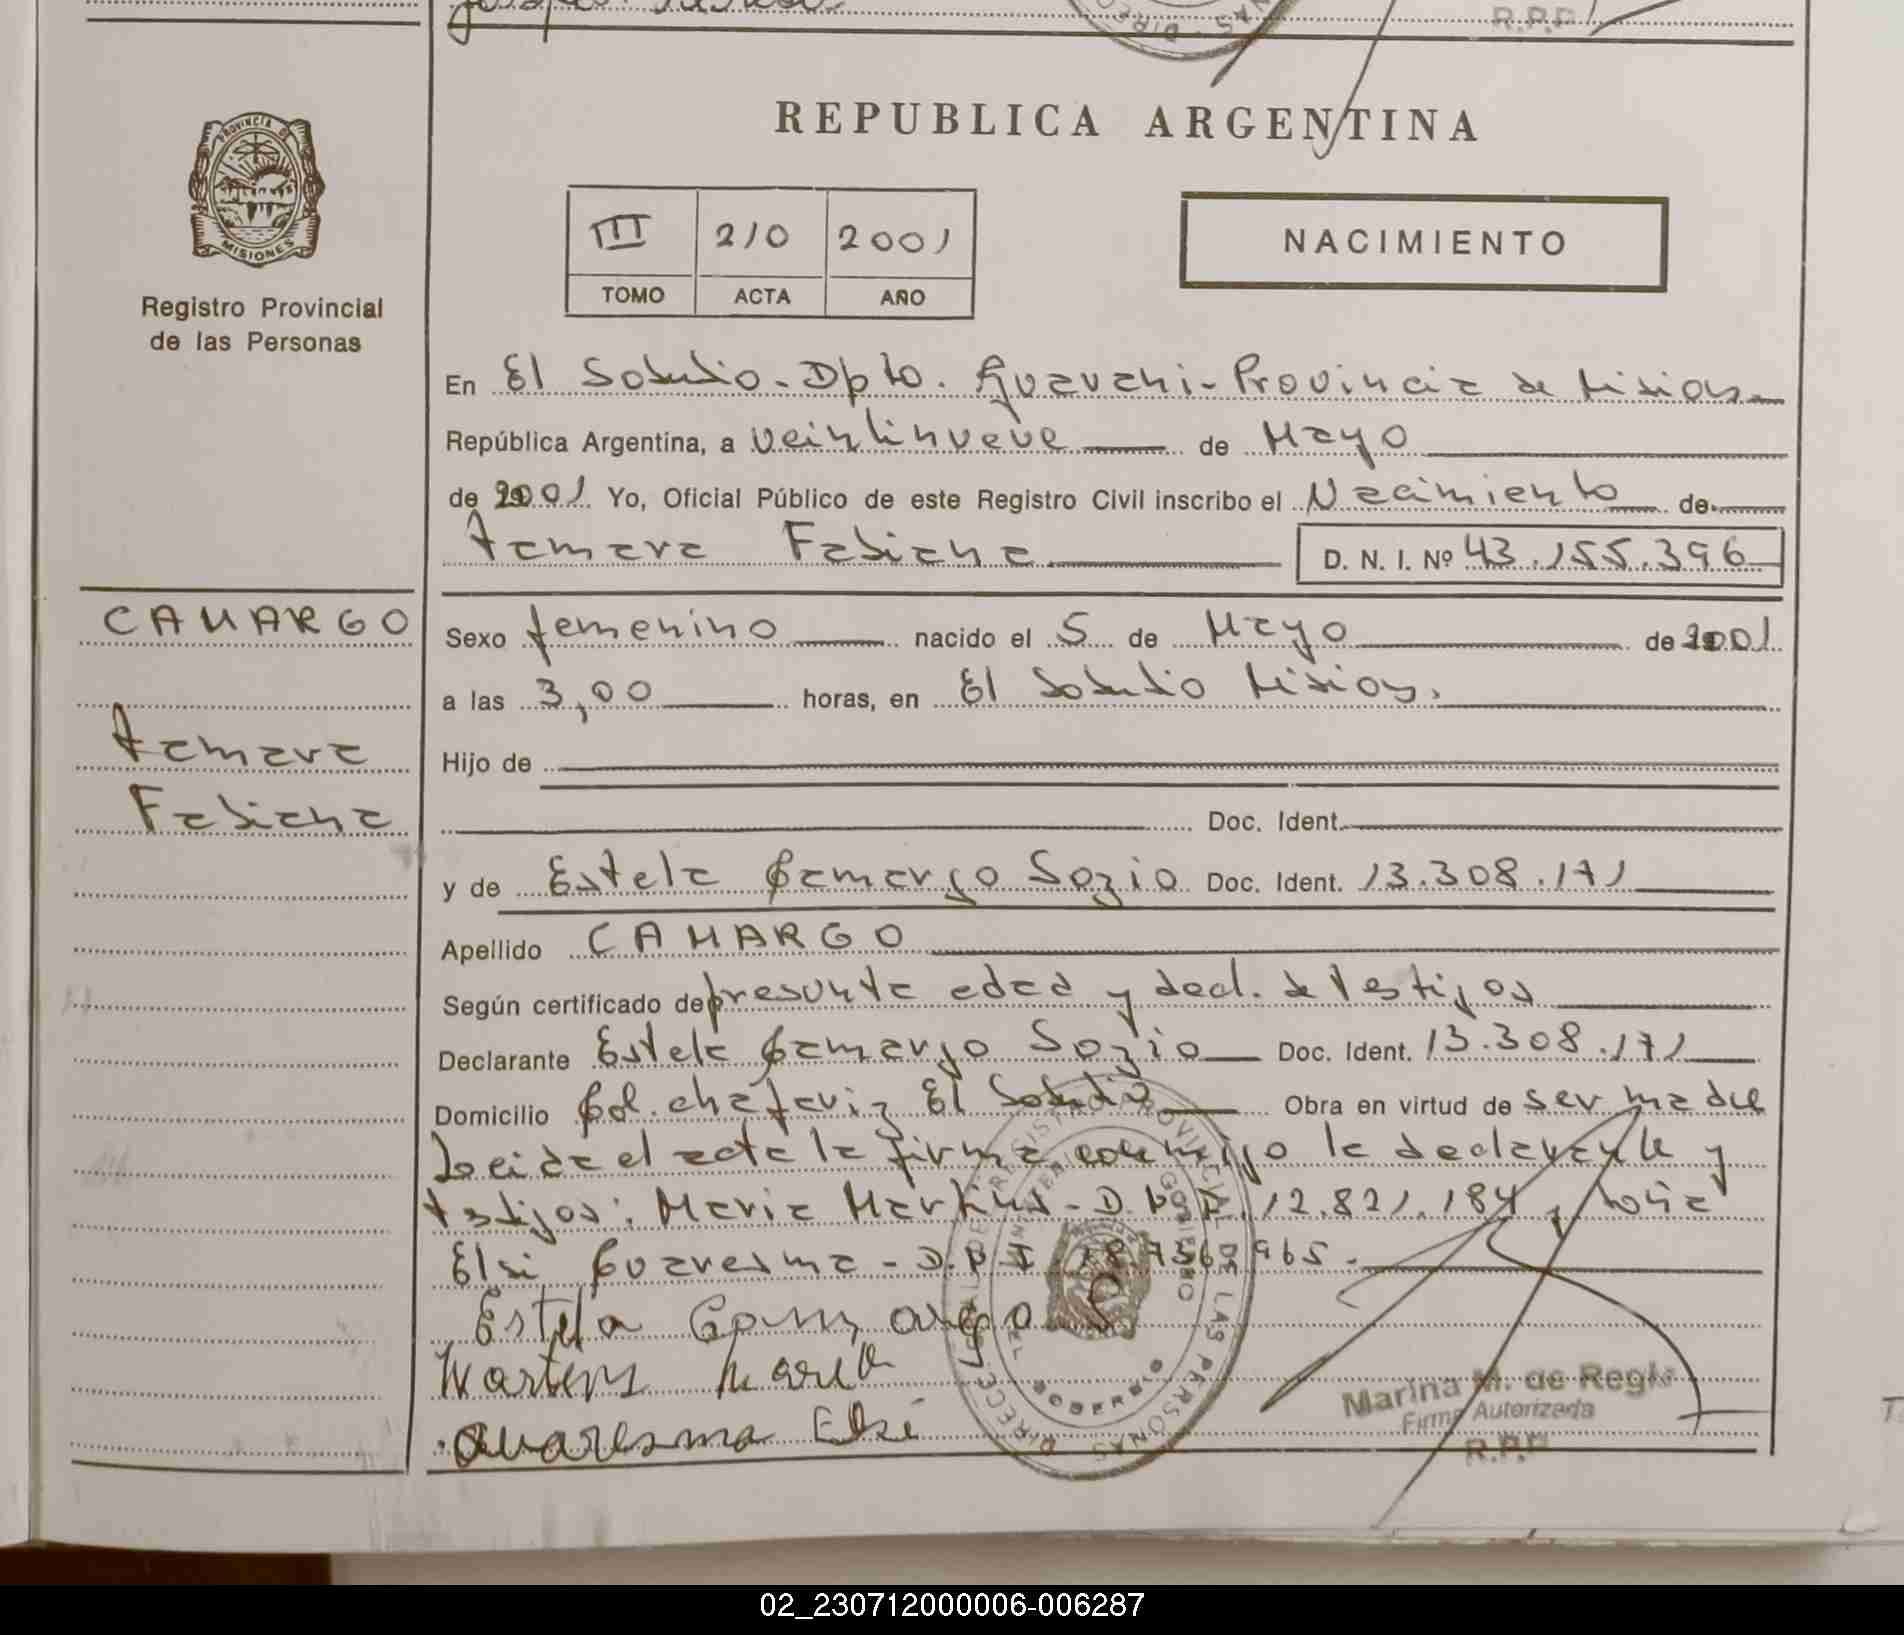 R.P.P.
PROVINCIA DE
MISIONES
Registro Provincial
de las Personas
REPUBLICA ARGENTINA
III 210 2001
TOMO ACTA AÑO
NACIMIENTO
En El Soberbio - Dpto. Guarani - Provincia de Misiones
República Argentina, a veintinueve de Mayo
de 2001 Yo, Oficial Público de este Registro Civil inscribo el Nacimiento de
Tamara Fabiana D. N. I. Nº 43.155.396
CAMARGO
Tamara
Fabiana
Sexo femenino nacido el 5 de Mayo de 2001
a las 3,00 horas, en El Soberbio Misiones.
Hijo de
Doc. Ident.
y de Estela Camargo Sozio Doc. Ident. 13.308.171
Apellido CAMARGO
Según certificado de presunta edad y decl. de testigos
Declarante Estela Camargo Sozio Doc. Ident. 13.308.171
Domicilio Col. Chafariz El Soberbio Obra en virtud de ser madre
Leida el acta la firma conmigo la declarante y
testigos: Maria Martins - D.N.I. 12.821.184 y
Elsi Cuaresma - D.N.I.
Estela Camargo S
Martins Maria
Quaresma Elsi
Marina M. de Regle
Firma Autorizada
R.P.P.
02_230712000006-006287